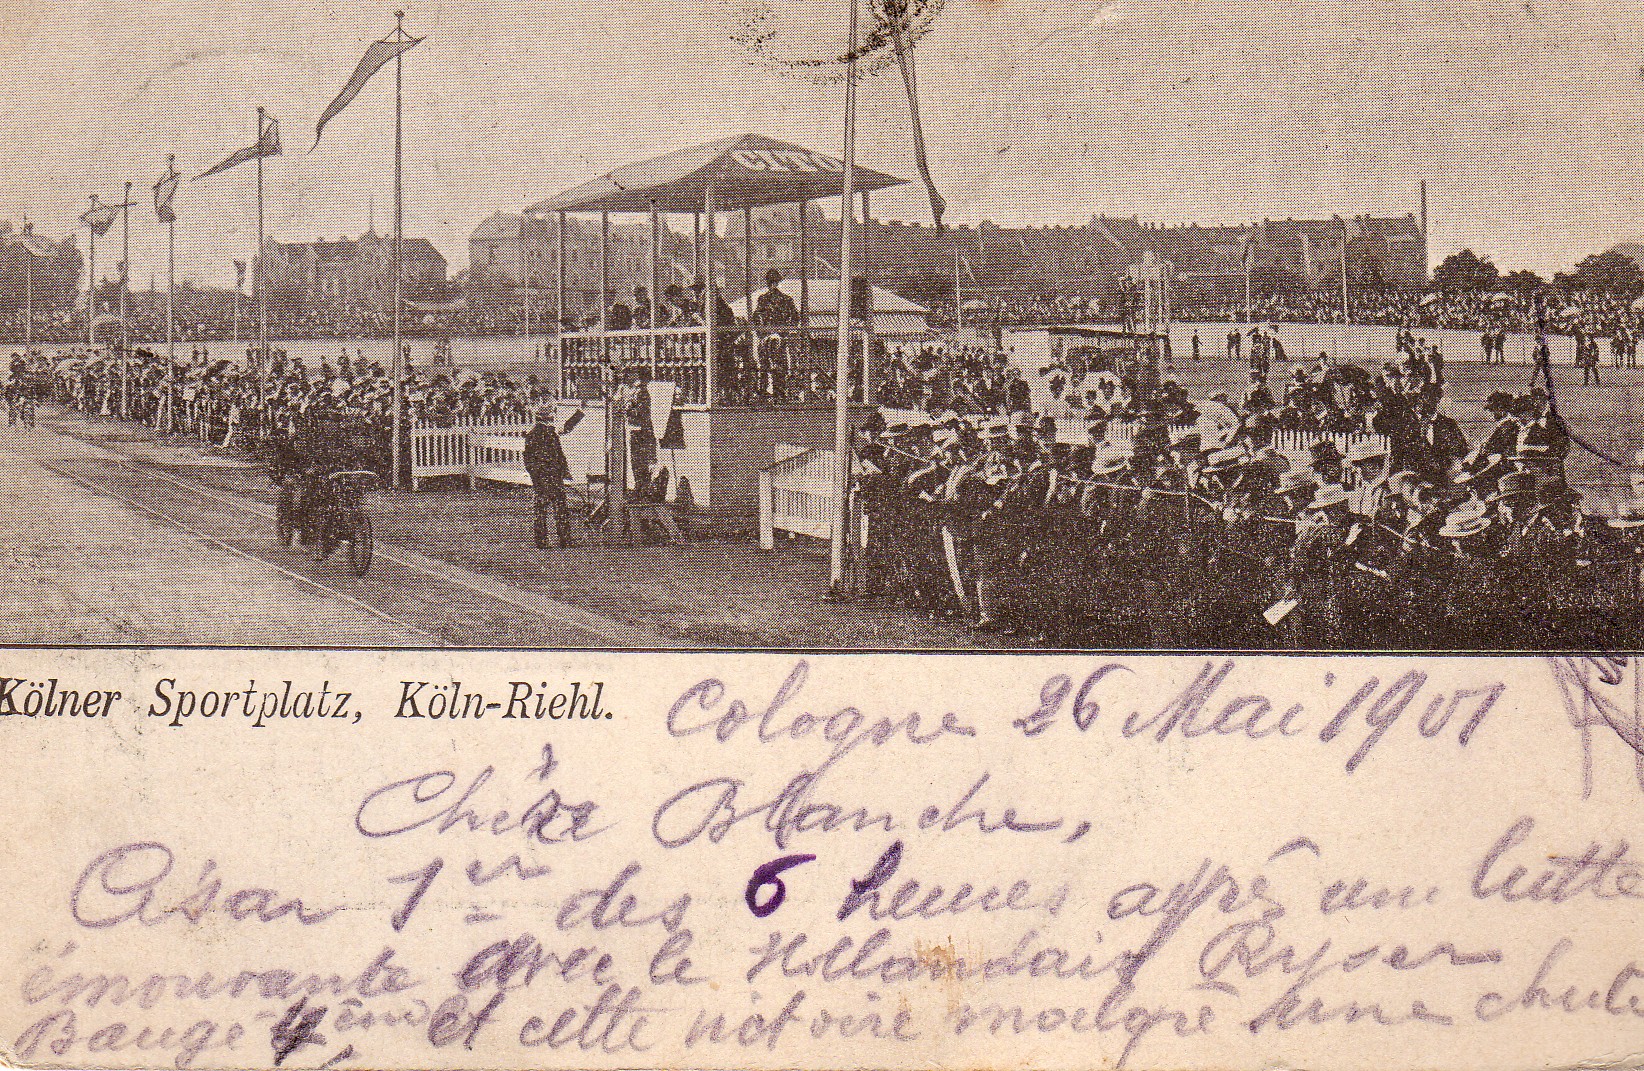 CITO
Kölner Sportplatz, Köln-Riehl.
Cologne 26 Mai 1901
Chère Blanche,
César 1er des 6 heures après une lutte
émouvante avec le Hollandais Ryser
Baugé et cette victoire malgré une chute